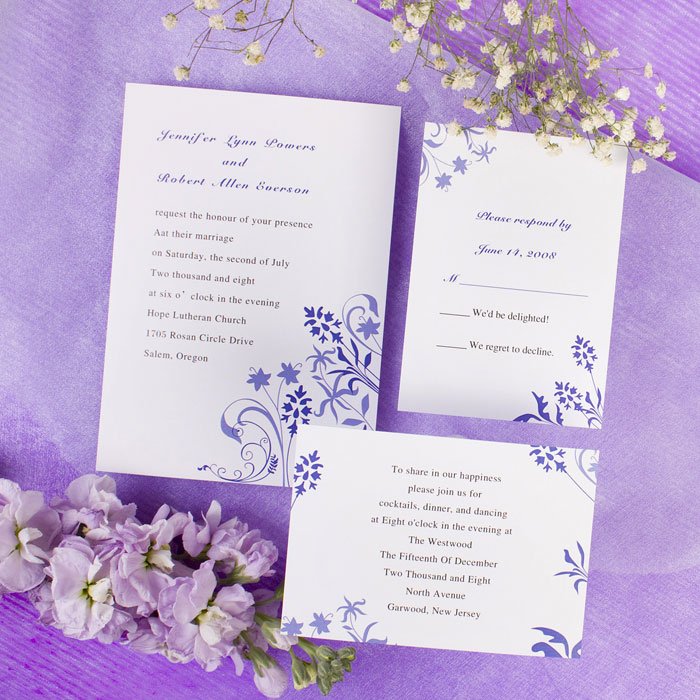 Jennifer Lynn Powers
and
Robert Allen Everson
request the honour of your presence
Aat their marriage
on Saturday, the second of July
Two thousand and eight
at six o' clock in the evening
Hope Lutheran Church
1705 Rosan Circle Drive
Salem, Oregon
Please respond by
June 14, 2008
M
We'd be delighted!
We regret to decline.
To share in our happiness
please join us for
cocktails, dinner, and dancing
at Eight o'clock in the evening at
The Westwood
The Fifteenth Of December
Two Thousand and Eight
North Avenue
Garwood, New Jersey